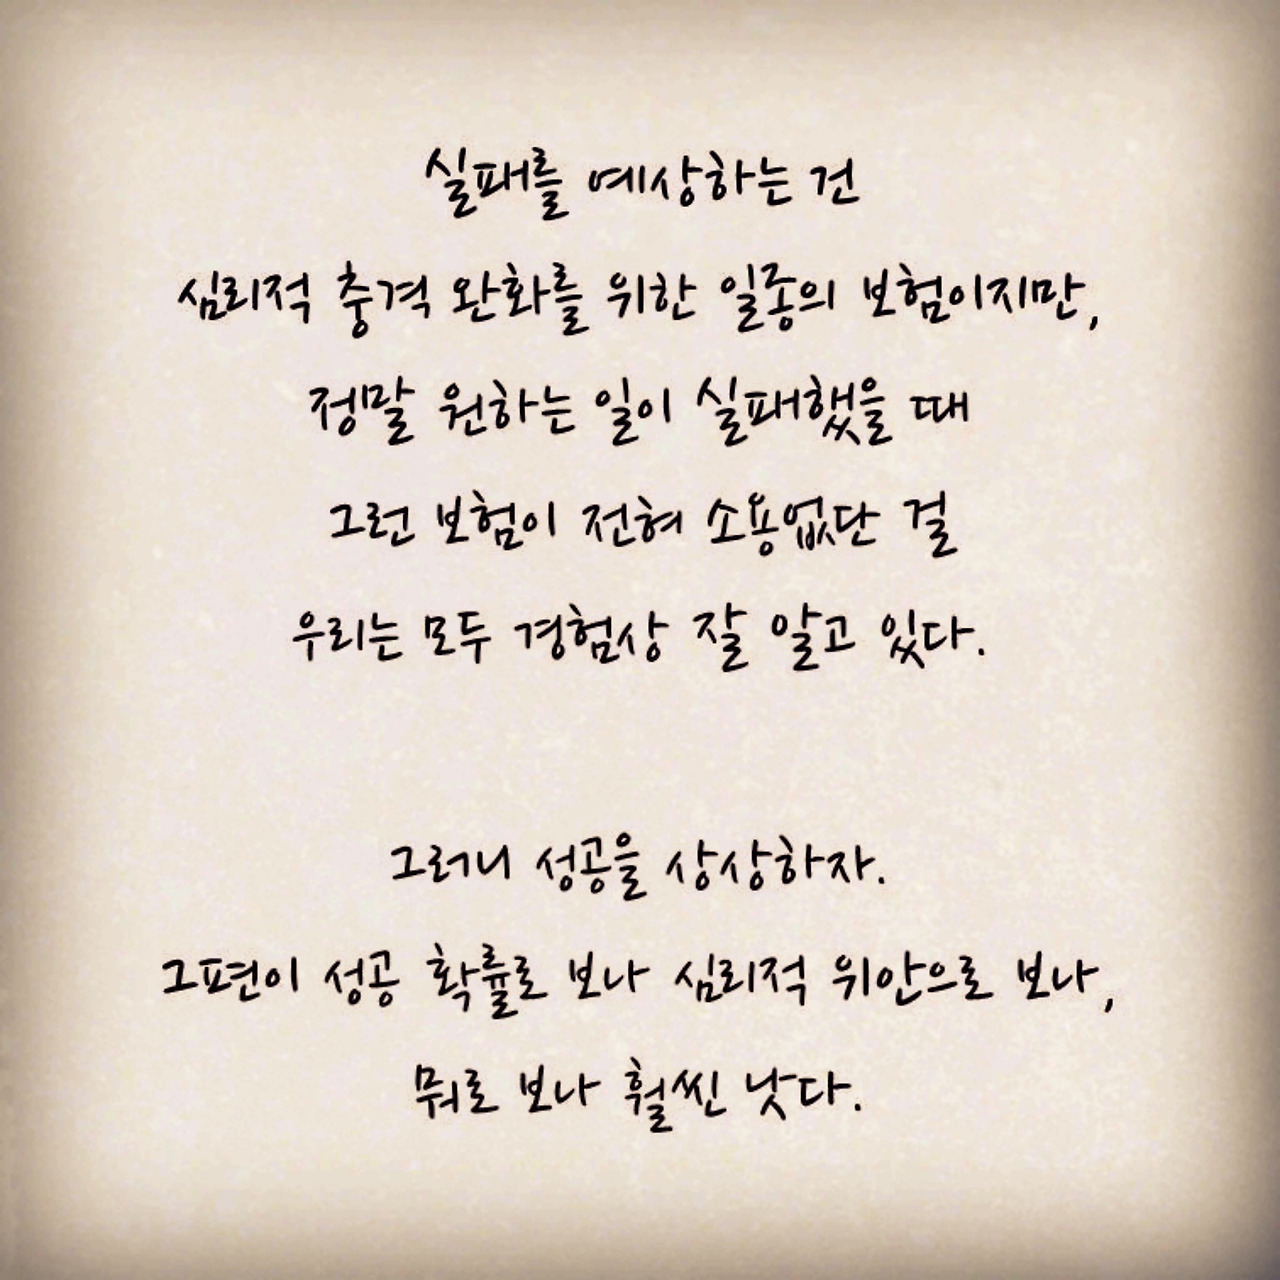 실패를 예상하는 건
심리적 충격 완화를 위한 일종의 보험이지만,
정말 원하는 일이 실패했을 때
그런 보험이 전혀 소용없단 걸
우리는 모두 경험상 잘 알고 있다.
그러니 성공을 상상하자.
그편이 성공 확률로 보나 심리적 위안으로 보나,
뭐로 보나 훨씬 낫다.